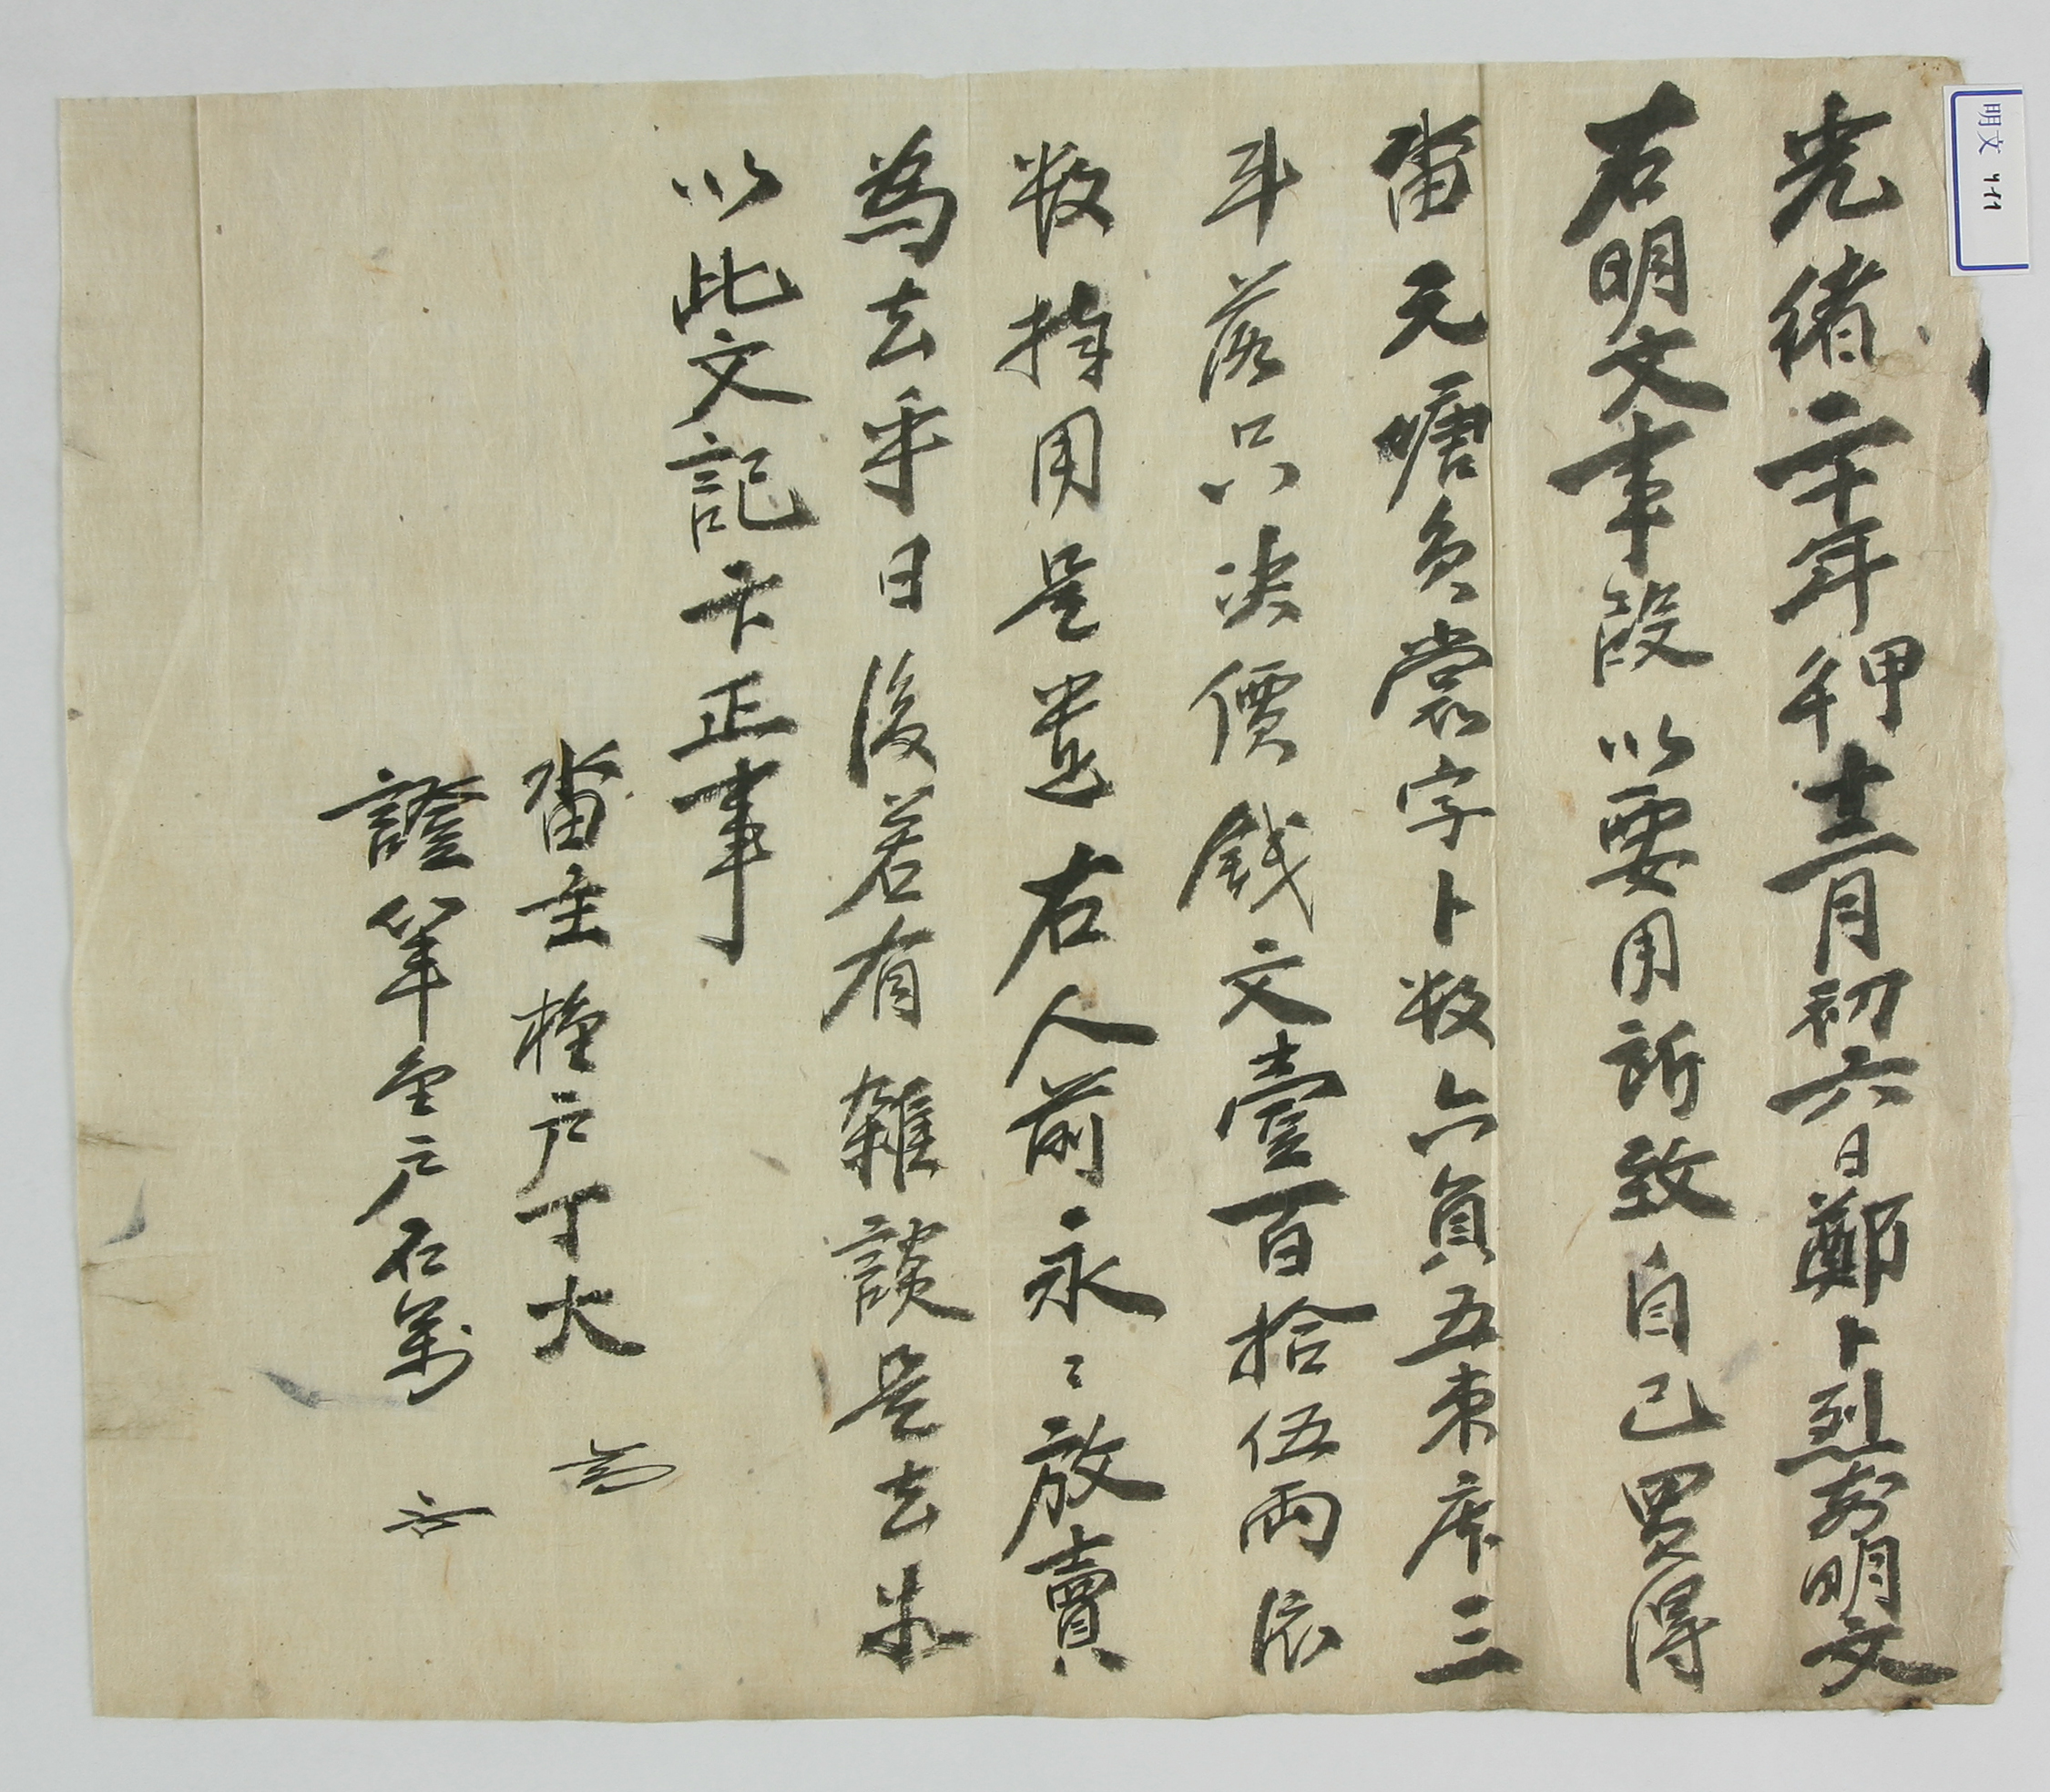 光緒二十年甲午十二月初六日鄭卜烈前明文
右明文事段以要用所致自己買得
畓元塘員裳字卜數六負五束庫三
斗落只決價錢文壹百拾伍兩依
数捧用是遣右人前永〻放賣
爲去乎日後若有雜談是去等
以此文記卞正事
畓主權戶丁大
證筆金戶石萬
明文